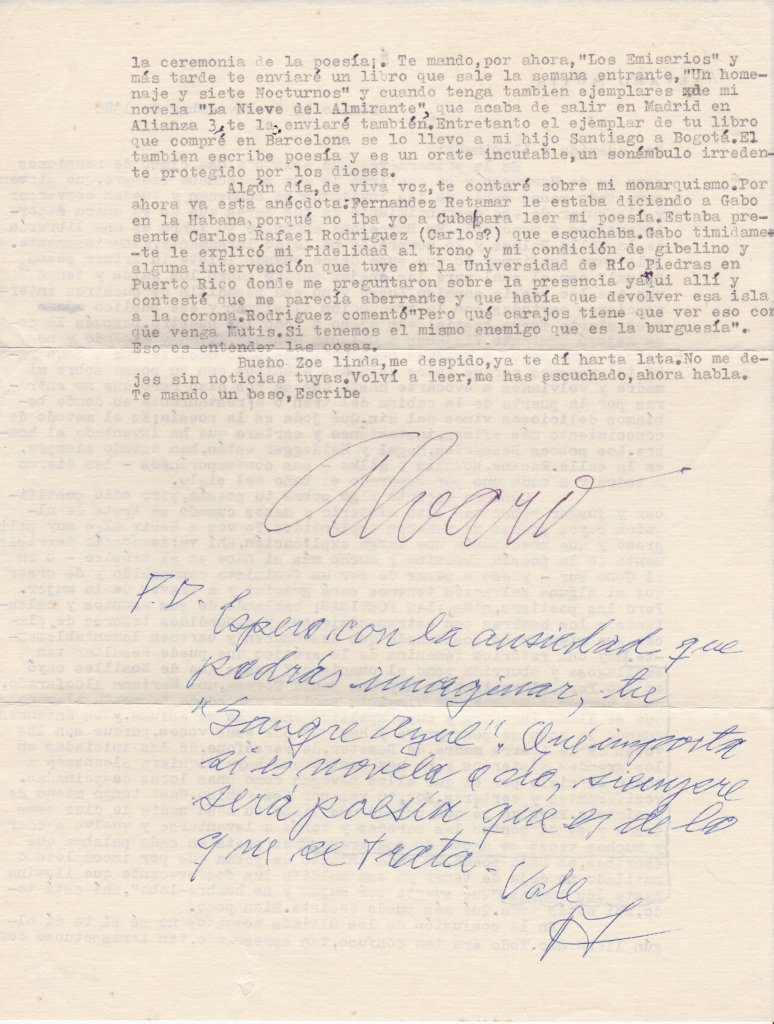 la ceremonia de la poesía¡. Te mando,por ahora,"Los Emisarios" y
más tarde te enviaré un libro que sale la semana entrante,"Un home-
naje y siete Nocturnos" y cuando tenga tambien ejemplares de mi
novela "La Nieve del Almirante",que acaba de salir en Madrid en
Alianza 3,te la enviaré también.Entretanto el ejemplar de tu libro
que compré en Barcelona se lo llevo a mi hijo Santiago a Bogotá.El
tambien escribe poesía y es un orate incurable,un sonámbulo irreden-
te protegido por los dioses.
Algún día,de viva voz,te contaré sobre mi monarquismo.Por
ahora va esta anécdota:Fernandez Retamar le estaba diciendo a Gabo
en la Habana porqué no iba yo a Cuba para leer mi poesía.Estaba pre-
sente Carlos Rafael Rodriguez (Carlos?) que escuchaba.Gabo timidame-
-te le explicó mi fidelidad al trono y mi condición de gibelino y
alguna intervención que tuve en la Universidad de Río Piedras en
Puerto Rico donde me preguntaron sobre la presencia yaqui allí y
contesté que me parecía aberrante y que había que devolver esa isla
a la corona.Rodriguez comentó"Pero qué carajos tiene que ver eso con
que venga Mutis.Si tenemos el mismo enemigo que es la burguesía".
Eso es entender las cosas.
Bueno Zoe linda,me despido,ya te dí harta lata.No me de-
jes sin noticias tuyas.Volví a leer,me has escuchado,ahora habla.
Te mando un beso,Escribe
Alvaro
P.D. Espero con la ansiedad que
podrás imaginar, tu
"Sangre azul". Qué importa
si es novela o no, siempre
será poesía que es de lo
que se trata- Vale